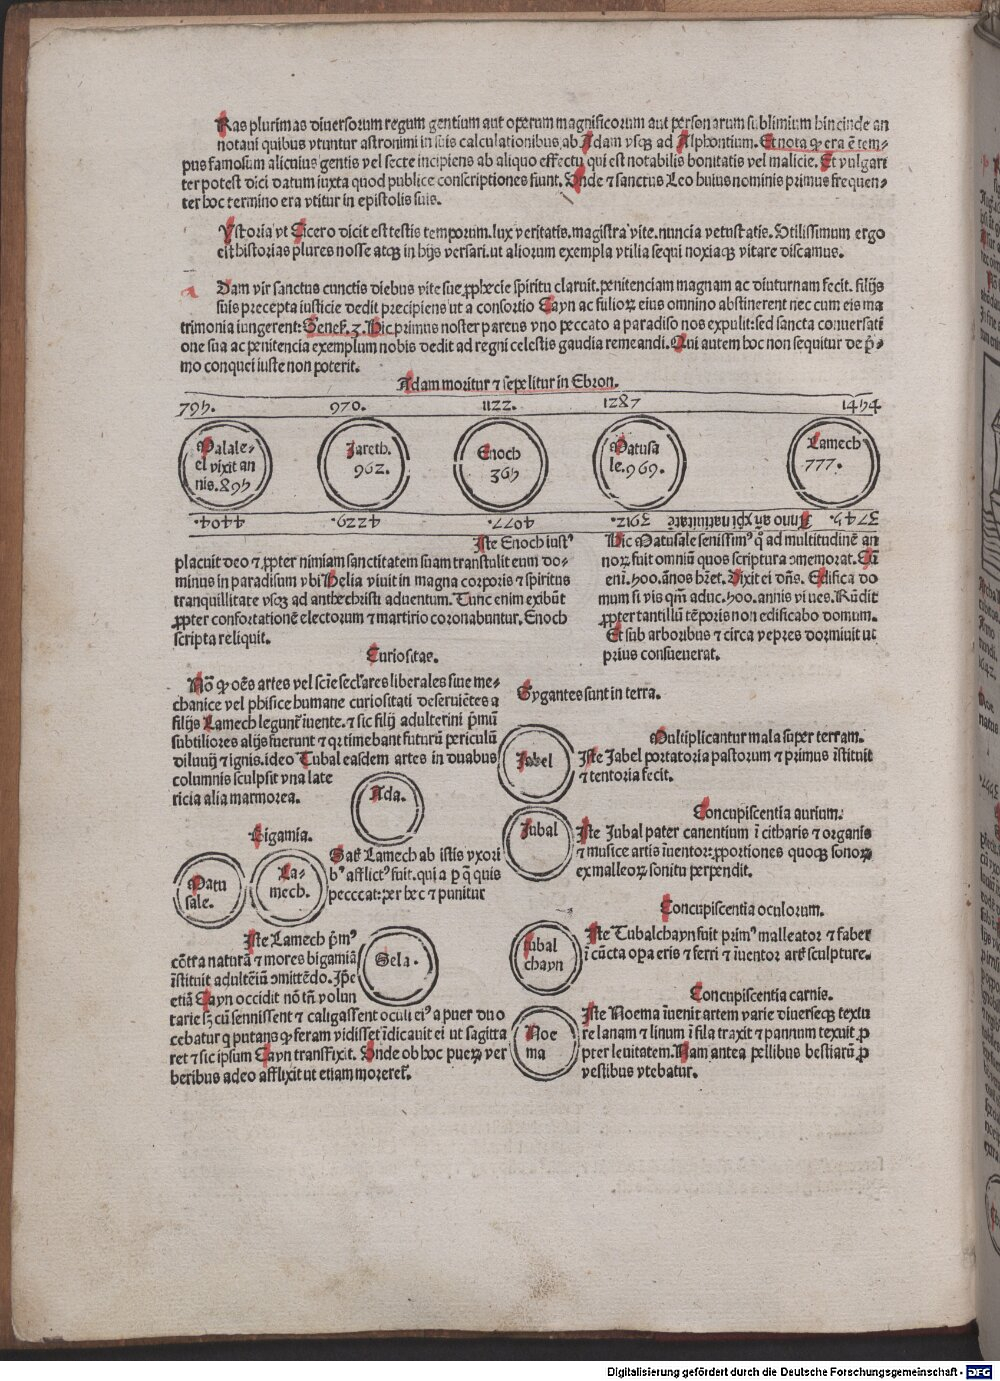 Ras plurimas diuersorum regum gentium aut operum magnificorum aut personarum sublimium hincinde an
notaui quibus vtuntur astronimi in suis calculationibus ab Adam vsqꝫ ad Alphontium. Et nota ꝙ era ē tem-
pus famosum alicuius gentis vel secte incipiens ab aliquo effectu qui est notabilis bonitatis vel malicie. Et vulgari
ter potest dici datum iuxta quod publice conscriptiones fiunt. Vnde ⁊ sanctus Leo huius nominis primus frequen-
ter hoc termino era vtitur in epistolis suis.
Ystoria vt Cicero dicit est testis temporum. lux veritatis. magistra vite. nuncia vetustatis. Vtilissimum ergo
eīt historias plures nosse atqꝫ in hijs versari. ut aliorum exempla vtilia sequi noxiaqꝫ vitare discamus.
a Dam vir sanctus cunctis diebus vite sue ꝓphecie spiritu claruit. penitenciam magnam ac diuturnam fecit. filijs
suis precepta iusticie dedit precipiens ut a consortio Cayn ac filioꝝ eius omnino abstinerent nec cum eis ma
trimonia iungerent: Genes̄. 3. Hic primus noster parens vno peccato a paradiso nos expulit: sed sancta conuersati
one sua ac penitencia exemplum nobis dedit ad regni celestis gaudia remeandi. Qui autem hoc non sequitur de p̄-
mo conqueri iuste non poterit.
Adam moritur ⁊ sepelitur in Ebron.
795. 970. 1122. 1287 1454
Malale-
el vixit an
nis. 895
Jareth.
962.
Enoch
365
Matusa
le. 969.
Lamech
777.
4404. 4229. 4077. 3912. Anno añ xp̄i natiuitatē 3745.
Iste Enoch iustꝰ
placuit deo ⁊ ꝓpter nimiam sanctitatem suam transtulit eum do-
minus in paradisum vbi Helia viuit in magna corporis ⁊ spiritus
tranquillitate vsqꝫ ad anthechristi aduentum. Tunc enim exibūt
ꝓpter confortationē electorum ⁊ martirio coronabuntur. Enoch
scripta reliquit.
Hic Matusale senissimꝰ q̄ ad multitudinē an
noꝝ fuit omniū quos scriptura ɔmemorat. Cū
eni. 500. ānos hr̄et. Dixit ei dn̄s. Edifica do
mum si vis qm̄ adhuc. 500. annis viues. Rn̄dit
ꝓpter tantillū tēporis non edificabo domum.
Et sub arboribus ⁊ circa vepres dormiuit ut
prius consueuerat.
Curiositas.
Nō ꝙ oēs artes vel scīe seclares liberales siue me-
chanice vel phisice humane curiositati deseruiētes a
filijs Lamech legunt̄ iuente. ⁊ sic filij adulterini p̄mū
subtiliores alijs fuerunt ⁊ qr timebant futurū periculū
diluuij ⁊ ignis. ideo Tubal easdem artes in duabus
columnis sculpsit vna late
ricia alia marmorea.
Gygantes sunt in terra.
Multiplicantur mala super terram.
Jabel
Iste Jabel portatoria pastorum ⁊ primus īstituit
⁊ tentoria fecit.
Ada.
Concupiscentia aurium.
Jubal
Iste Jubal pater canentium ī citharis ⁊ organis
⁊ musice artis īuentor: ꝓportiones quoqꝫ sonoꝝ
ex malleoꝝ sonitu perpendit.
Bigamia.
Matu
sale.
La-
mech.
Lamech ab istis vxori
bꝰ afflictꝰ fuit. qui a p q̄ quis
peccat: per hec ⁊ punitur
Concupiscentia oculorum.
tubal
chayn
Iste Tubalchayn fuit primꝰ malleator ⁊ faber
ī cūcta opa eris ⁊ ferri ⁊ īuentor art̄ sculpture.
Iste Lamech p̄mꝰ
cōtra naturā ⁊ mores bigamiā
īstituit adulteriū ɔmittēdo. Ip̄e
etiā Cayn occidit nō tn̄ volun
tarie sꝫ cū sennissent ⁊ caligassent oculi eiꝰ a puer duo
cebatur q putans ꝙ feram vidisset īdicauit ei ut sagitta
ret ⁊ sic ipsum Cayn transfixit. Vnde ob hoc pueꝝ ver
beribus adeo afflixit ut etiam moreret̄.
Sela.
Concupiscentia carnis.
Noe
ma
Iste Noema īuenit artem varie diuerseqꝫ textu
re lanam ⁊ linum ī fila traxit ⁊ pannum texuit ꝓ
pter leuitatem. Nam antea pellibus bestiarū ꝓ
vestibus vtebatur.
Digitalisierung gefördert durch die Deutsche Forschungsgemeinschaft - DFG